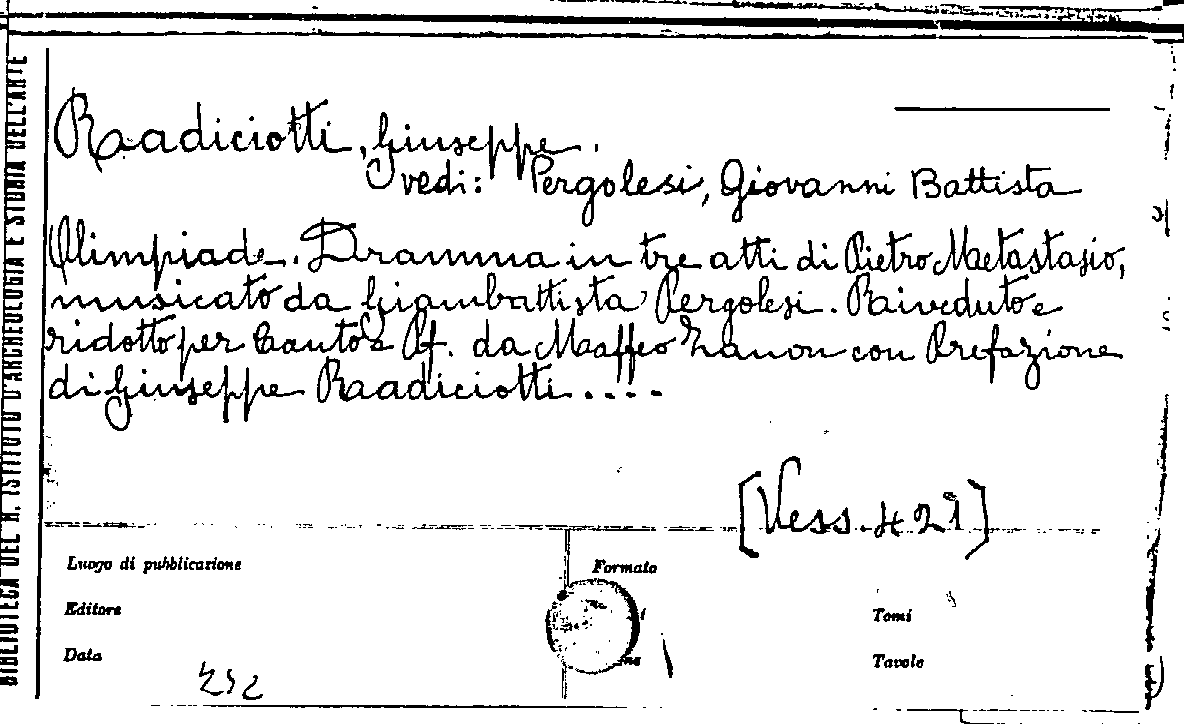 Radiciotti, Giuseppe.
vedi: Pergolesi, Giovanni Battista
Olimpiade. Dramma in tre atti di Pietro Metastasio,
musicato da Giambattista Pergolesi. Riveduto e
ridotto per Canto e Pf. da Maffeo Zanon con Prefazione
di Giuseppe Radiciotti....
[Vess. 421]
BIBLIOTECA DEL R. ISTITUTO D'ARCHEOLOGIA E STORIA DELL'ARTE
Luogo di pubblicazione
Formato
Editore
Tomi
Data
Tavole
252